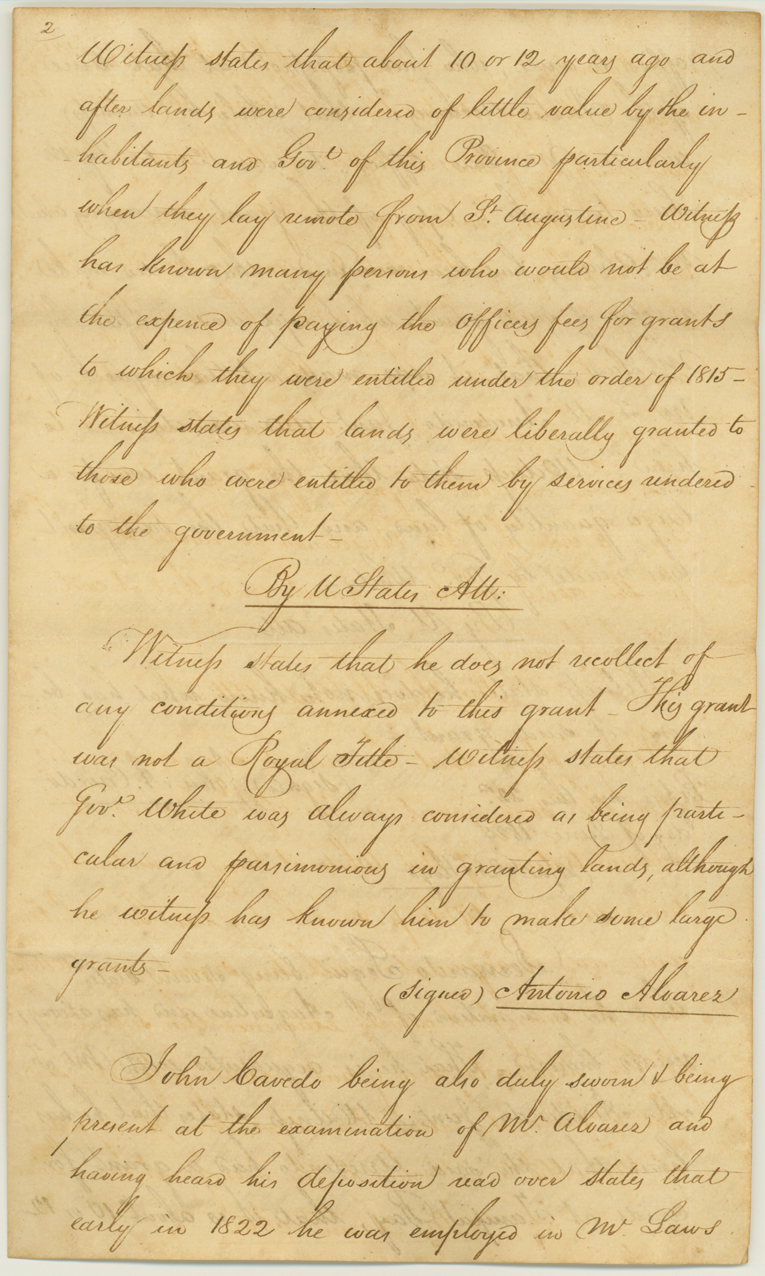 2
Witness states that about 10 or 12 years ago and
after lands were considered of little value by the in-
-habitants and Govt of this Province particularly
when they lay remote from St. Augustine - Witness
has known many persons who would not be at
the expence of paying the officers fees for grants
to which they were entitled under the order of 1815-
Witness states that lands were liberally granted to
those who were entitled to them by services rendered
to the government-
By U States Att:
Witness states that he does not recollect of
any conditions annexed to this grant - This grant
was not a Royal Title - Witness states that
Govr. White was always considered as being parti-
cular and parsimonious in granting lands, although
he witness has known him to make some large
grants-
(signed) Antonio Alvarez
John Cavedo being also duly sworn & being
present at the examination of Mr. Alvarez and
having heard his deposition read over states that
early in 1822 he was employed in Mr Laws